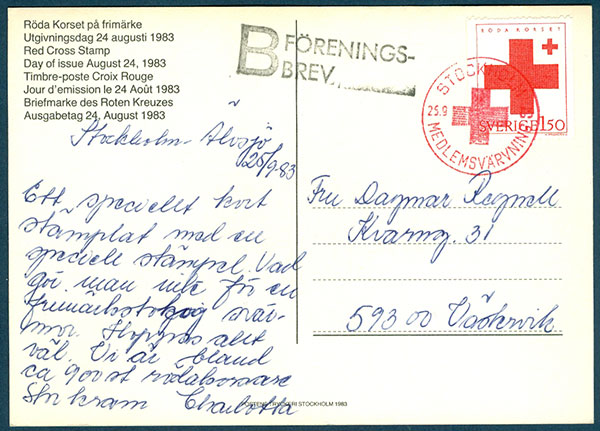 Röda Korset på frimärke
Utgivningsdag 24 augusti 1983
Red Cross Stamp
Day of issue August 24, 1983
Timbre-poste Croix Rouge
Jour d'emission le 24 Août 1983
Briefmarke des Roten Kreuzes
Ausgabetag 24. August 1983
B FÖRENINGS-
BREV
RÖDA KORSET
SVERIGE 150
STOCKHOLM
25.9
MEDLEMSVÄRVNING
Stockholm-Älvsjö
25/9-83
Ett speciellt kort
stämplat med en
speciell stämpel. Vad
gör man inte för en
frimärkstokig svär-
mor. Hoppas allt
väl. Vi är bland
ca 900 st rödakorsare
Stor kram Charlotta
Fru Dagmar Regnell
Kvarng. 31
593 00 Västervik
POSTENS TRYCKERI STOCKHOLM 1983